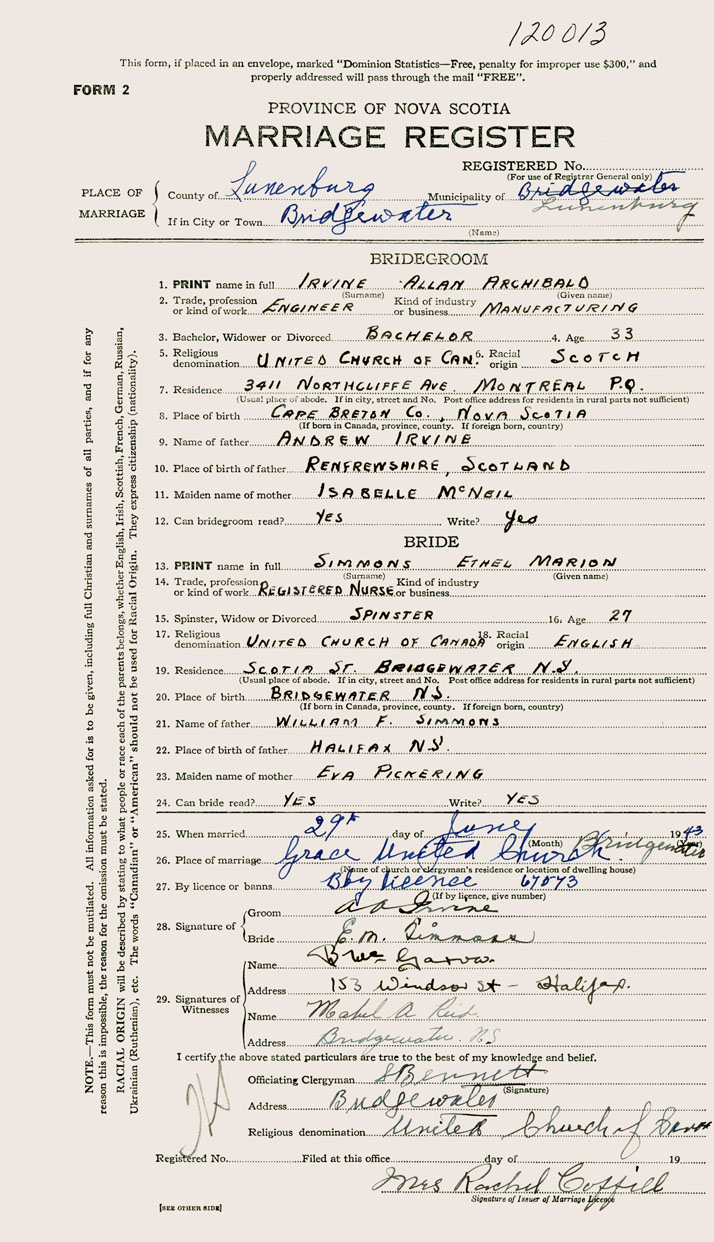 120013
This form, if placed in an envelope, marked “Dominion Statistics—Free, penalty for improper use $300,” and
properly addressed will pass through the mail “FREE”.
FORM 2
PROVINCE OF NOVA SCOTIA
MARRIAGE REGISTER
REGISTERED No.
(For use of Registrar General only)
PLACE OF MARRIAGE
County of Lunenburg Municipality of Bridgewater Lunenburg
If in City or Town Bridgewater
(Name)
BRIDEGROOM
1. PRINT name in full IRVINE ALLAN ARCHIBALD
(Surname) (Given name)
2. Trade, profession or kind of work ENGINEER Kind of industry or business MANUFACTURING
3. Bachelor, Widower or Divorced BACHELOR 4. Age 33
5. Religious denomination UNITED CHURCH OF CAN. 6. Racial origin SCOTCH
7. Residence 3411 NORTHCLIFFE AVE. MONTREAL P.Q.
(Usual place of abode. If in city, street and No. Post office address for residents in rural parts not sufficient)
8. Place of birth CAPE BRETON CO., NOVA SCOTIA
(If born in Canada, province, county. If foreign born, country)
9. Name of father ANDREW IRVINE
10. Place of birth of father RENFREWSHIRE, SCOTLAND
11. Maiden name of mother ISABELLE McNEIL
12. Can bridegroom read? YES Write? Yes
BRIDE
13. PRINT name in full SIMMONS ETHEL MARION
(Surname) (Given name)
14. Trade, profession or kind of work REGISTERED NURSE Kind of industry or business
15. Spinster, Widow or Divorced SPINSTER 16. Age 27
17. Religious denomination UNITED CHURCH OF CANADA 18. Racial origin ENGLISH
19. Residence SCOTIA ST. BRIDGEWATER N.S.
(Usual place of abode. If in city, street and No. Post office address for residents in rural parts not sufficient)
20. Place of birth BRIDGEWATER N.S.
(If born in Canada, province, county. If foreign born, country)
21. Name of father WILLIAM F. SIMMONS
22. Place of birth of father HALIFAX N.S.
23. Maiden name of mother EVA PICKERING
24. Can bride read? YES Write? YES
25. When married 29th day of June 1943
(Month) (Year)
26. Place of marriage Grace United Church. Bridgewater
(Name of church or clergyman's residence or location of dwelling house)
27. By licence or banns By licence 67073
(If by licence, give number)
28. Signature of
Groom A A Irvine
Bride E. M. Simmons
29. Signatures of Witnesses
Name
Address 153 Windsor St - Halifax.
Name Mabel A Reid.
Address Bridgewater. N.S
I certify the above stated particulars are true to the best of my knowledge and belief.
Officiating Clergyman Bennett
(Signature)
Address Bridgewater
Religious denomination United Church of
Registered No. Filed at this office day of 19
Mrs Rachel Coffill
Signature of Issuer of Marriage Licence
[SEE OTHER SIDE]
NOTE.—This form must not be mutilated. All information asked for is to be given, including full Christian and surnames of all parties, and if for any
reason this is impossible, the reason for the omission must be stated.
RACIAL ORIGIN will be described by stating to what people or race each of the parents belongs, whether English, Irish, Scottish, French, German, Russian,
Ukrainian (Ruthenian), etc. The words “Canadian” or “American” should not be used for Racial Origin. They express citizenship (nationality).